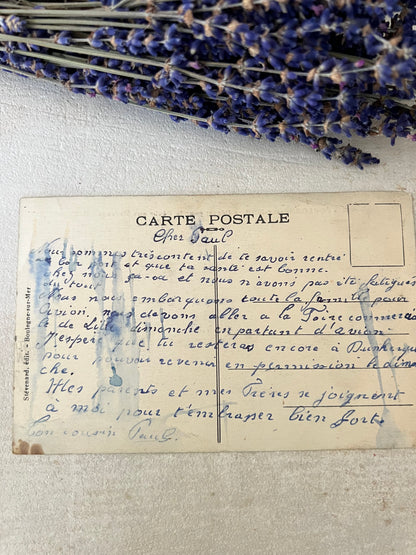 CARTE POSTALE
Cher Paul
Nous sommes très content de te savoir rentré
a bon port et que ta santé est bonne.
chez nous ça-va et nous n'avons pas été fatigués
du tout.
nous embarquons toute la famille pour
nous devons aller a la Foire commerciale
de Lille dimanche en partant d'avion
J'espère que tu resteras encore à Dunkerque
pour pouvoir revenir en permission le diman
che.
Mes parents et mes Frères se joignent
a moi pour t'embrasser bien fort.
ton cousin Paul.
Stévenard, édit. - Boulogne-sur-Mer